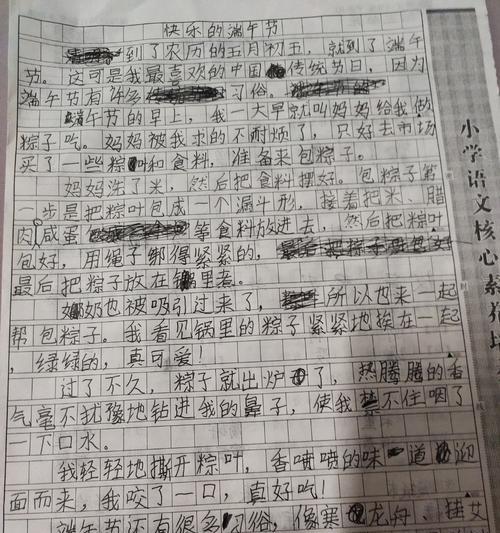 快乐的端午节
到了农历的五月初五，就到了端午
节。这可是我最喜欢的中国传统节日，因为
端午节有许多习俗。
端午节的早上，我一大早就叫妈妈给我做
粽子吃。妈妈被我求的不耐烦了，只好去市场
买了一些粽叶和食料，准备来包粽子。
妈妈洗了米，然后把食料摆好。包粽子第
一步是把粽叶包成一个漏斗形，接着把米、腊
肉咸蛋等食料放进去，然后把粽叶
包好，用绳子绑得紧紧的，
最后把粽子放在锅里煮。
奶奶也被吸引过来了，所以也来一起
帮包粽子。我看见锅里的粽子紧紧地挨在一起
，绿绿的，真可爱！
过了不久，粽子就出炉了，热腾腾的香
气毫不犹豫地钻进我的鼻子，使我禁不住咽了
一下口水。
我轻轻地撕开粽叶，香喷喷的味道迎
面而来，我咬了一口，真好吃！
端午节还有很多习俗，像赛龙舟、挂艾
小学语文核心素养